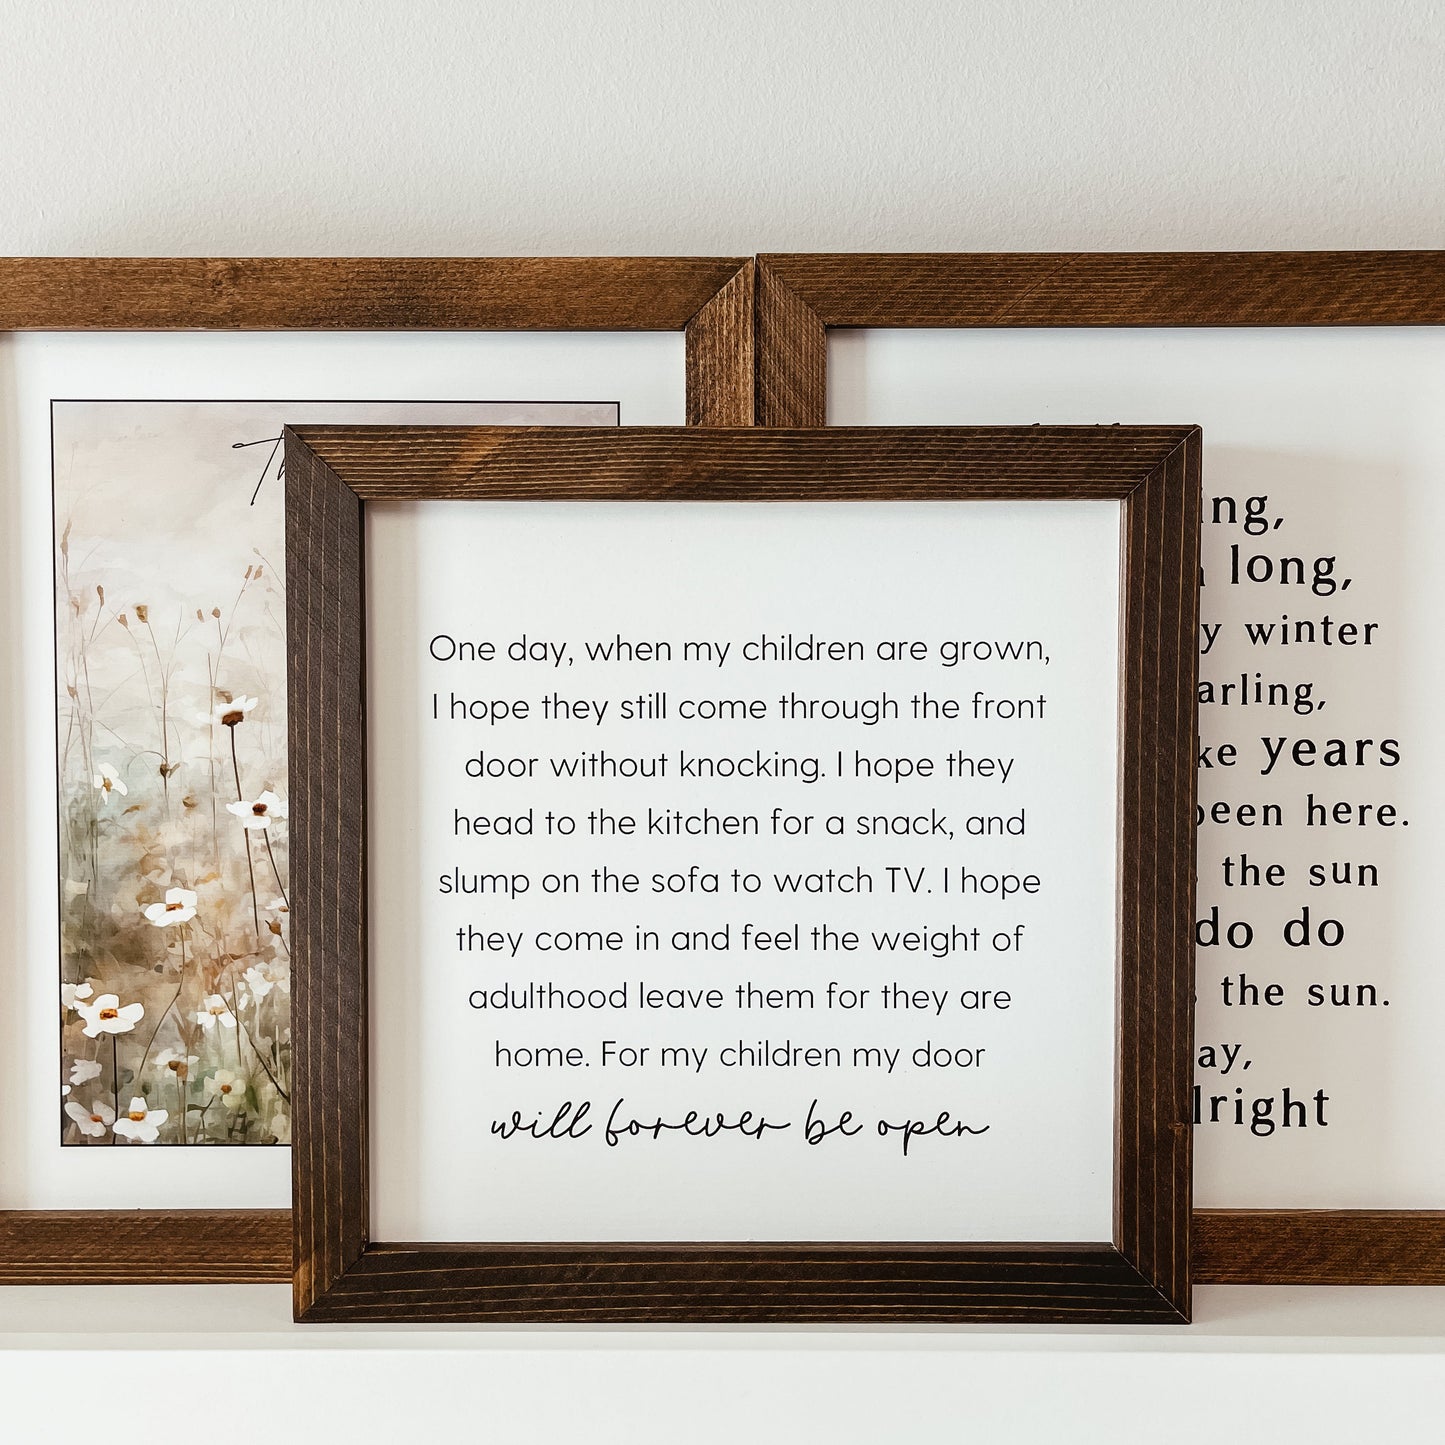 One day, when my children are grown,
I hope they still come through the front
door without knocking. I hope they
head to the kitchen for a snack, and
slump on the sofa to watch TV. I hope
they come in and feel the weight of
adulthood leave them for they are
home. For my children my door
will forever be open
long,
winter
years
here.
the sun
do do
the sun.